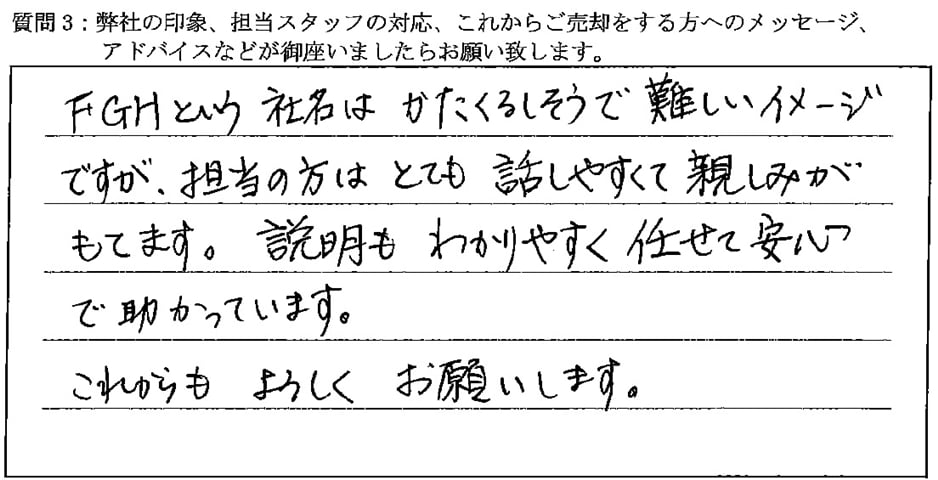 質問3：弊社の印象、担当スタッフの対応、これからご売却をする方へのメッセージ、
アドバイスなどが御座いましたらお願い致します。
FGHという 社名は かたくるしそうで 難しいイメージ
ですが、担当の方は とても 話しやすくて 親しみが
もてます。 説明も わかりやすく 任せて 安心
で 助かっています。
これからも よろしく お願いします。